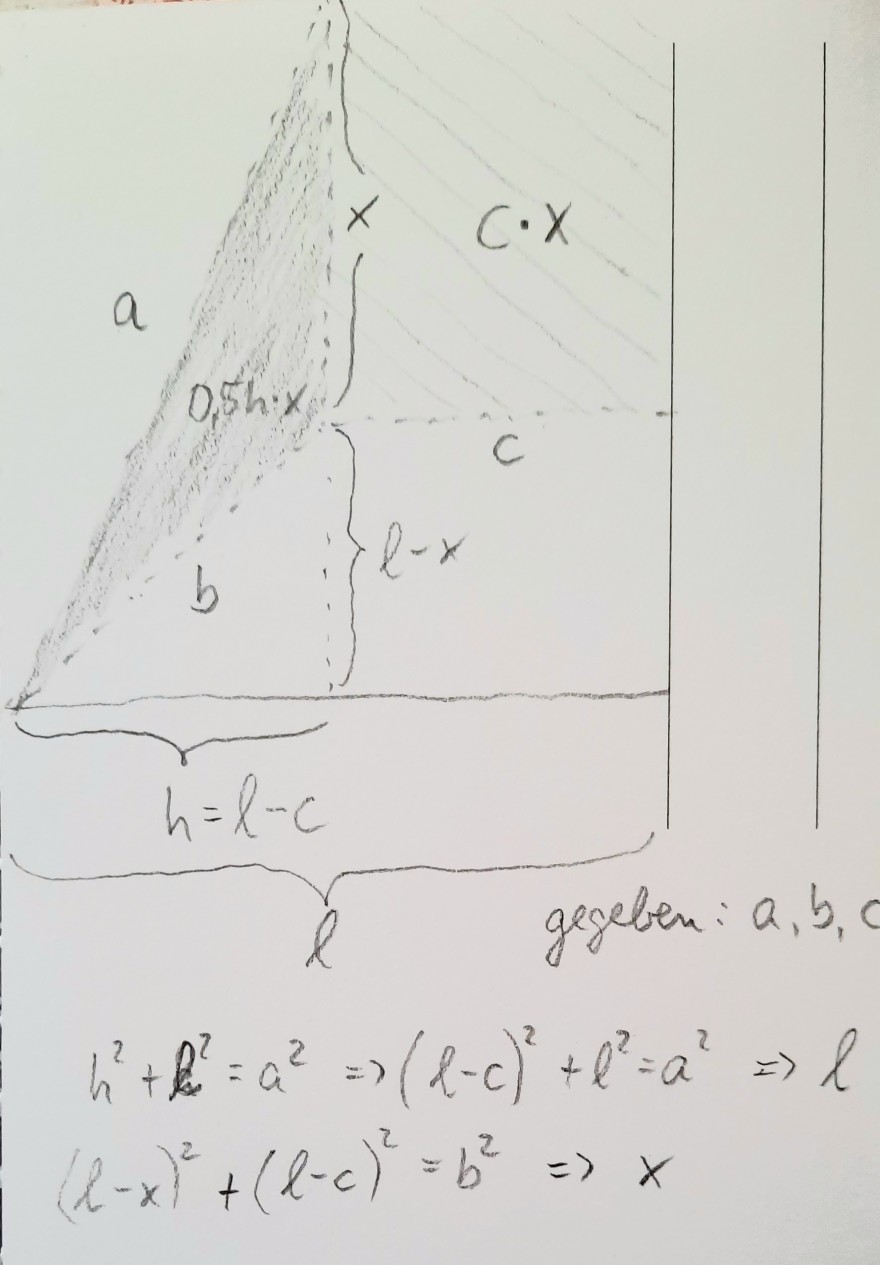 x
C·X
a
0,5h·x
c
l-x
b
h=l-c
l
gegeben: a, b, c
h²+l²=a² => (l-c)²+l²=a² => l
(l-x)²+(l-c)²=b² => x